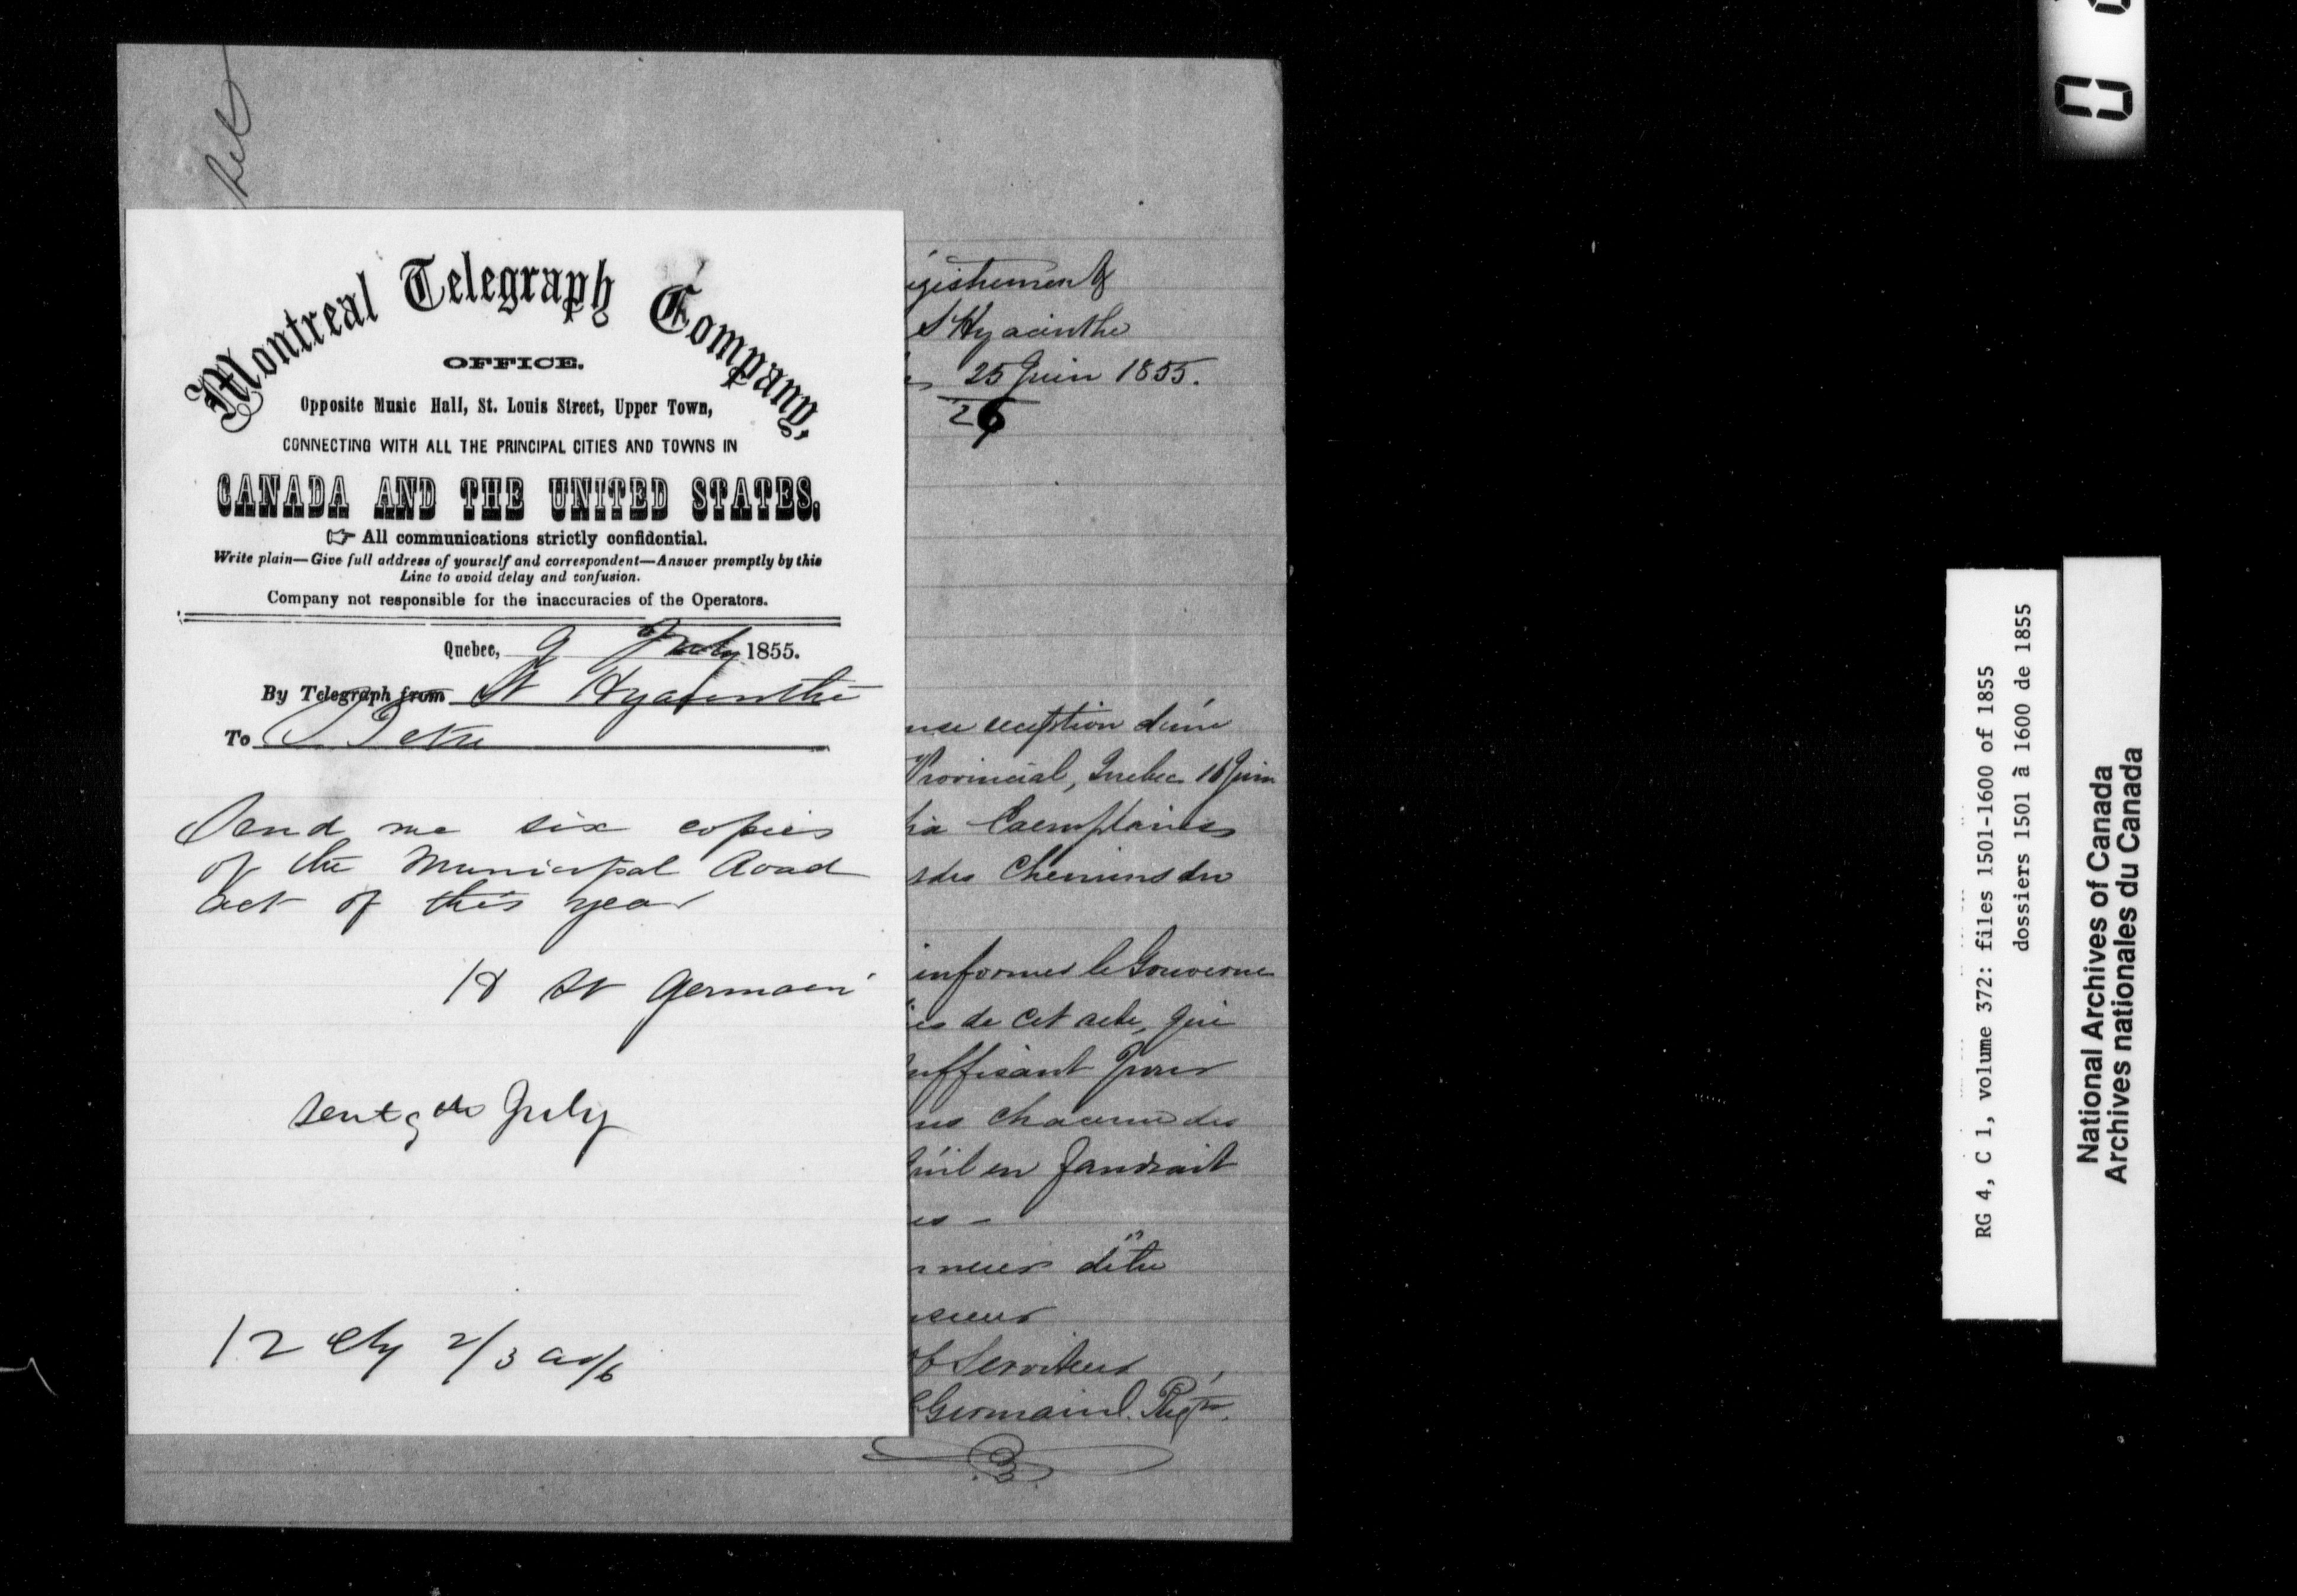 Montreal Telegraph Company,
OFFICE.
Opposite Music Hall, St. Louis Street, Upper Town,
CONNECTING WITH ALL THE PRINCIPAL CITIES AND TOWNS IN
CANADA AND THE UNITED STATES.
☞ All communications strictly confidential.
Write plain—Give full address of yourself and correspondent—Answer promptly by this
Line to avoid delay and confusion.
Company not responsible for the inaccuracies of the Operators.
Quebec, 9 July 1855.
By Telegraph from St Hyacinthe
To
Send me six copies
of the Municipal Road
act of this year
St Germain
sent 9th July
12 2/3
egistrement
St Hyacinthe
25 Juin 1855.
26
nse reception d'une
Provincial, Quebec 16 Juin
Exemplaires
des Chemins du
informer le Gouverne
de cet acte, que
uffisant pour
chacune des
qu'il en faudrait
es -
nneur d'être
sieur
Serviteur
Germain Regtr.
RG 4, C 1, volume 372: files 1501-1600 of 1855
dossiers 1501 à 1600 de 1855
National Archives of Canada
Archives nationales du Canada